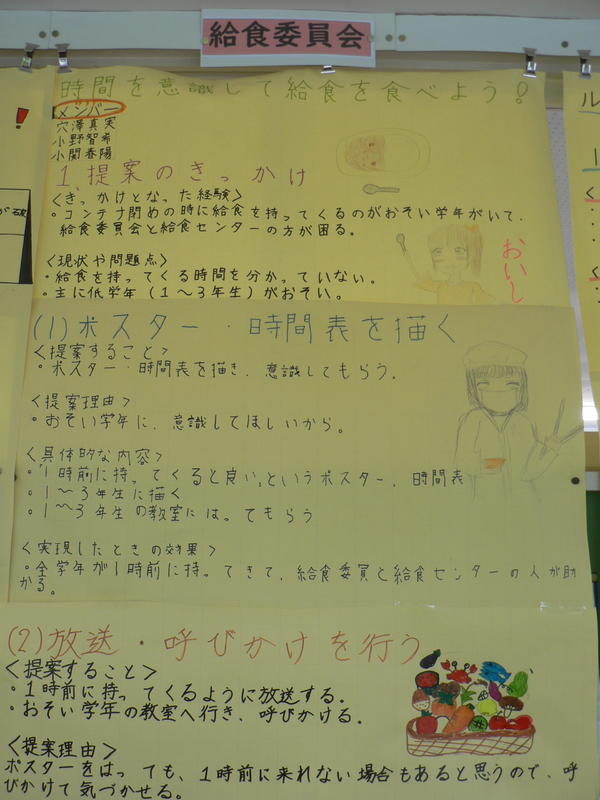 給食委員会
時間を意識して給食を食べよう！
メンバー
穴澤真実
小野智希
小関春陽
1 提案のきっかけ
<きっかけとなった経験>
・コンテナ閉めの時に給食を持ってくるのがおそい学年がいて、
給食委員会と給食センターの方が困る。
<現状や問題点>
・給食を持ってくる時間を分かっていない。
・主に低学年（1〜3年生）がおそい。
おいし
(1)ポスター・時間表を描く
<提案すること>
・ポスター・時間表を描き、意識してもらう。
<提案理由>
・おそい学年に、意識してほしいから。
<具体的な内容>
・「1時前に持ってくると良い」というポスター、時間表
・1〜3年生に描く
・1〜3年生の教室にはってもらう
<実現したときの効果>
・全学年が1時前に持ってきて、給食委員と給食センターの人が助
かる。
(2)放送・呼びかけを行う
<提案すること>
・1時前に持ってくるように放送する。
・おそい学年の教室へ行き、呼びかける。
<提案理由>
ポスターをはっても、1時前に来れない場合もあると思うので、呼
びかけて気づかせる。
！
ル